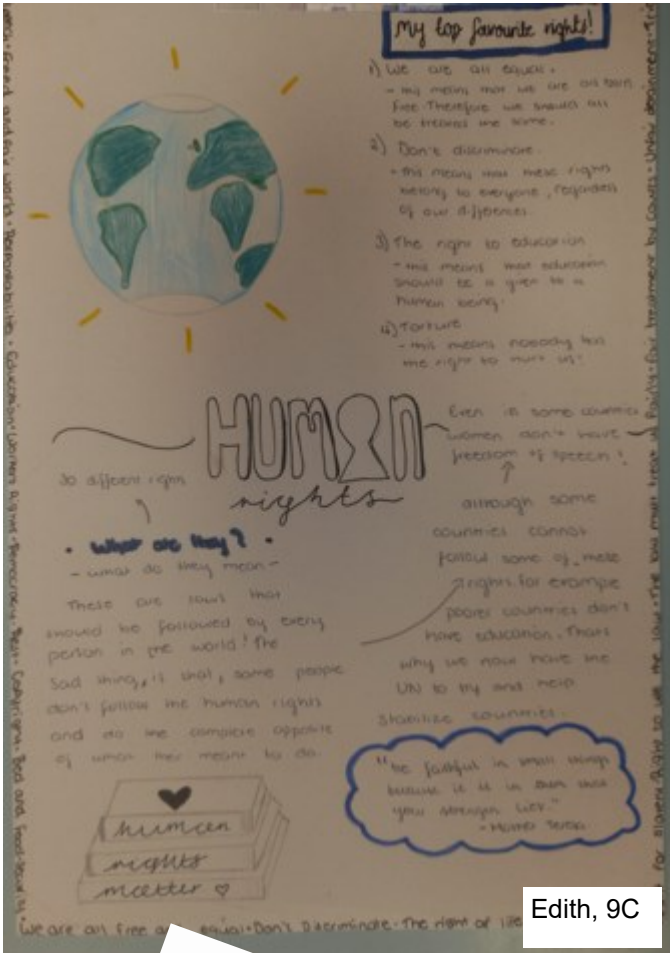 My top favourite rights!
1) We are all equal.
- this means that we are all born
free. Therefore we should all
be treated the same.
2) Don't discriminate.
- this means that these rights
belong to everyone, regardless
of our differences.
3) The right to education
- this means that education
should be a given to a
human being.
4) Torture
- this means nobody has
the right to hurt us!
HUMAN
rights
Even in some countries
women don't have
freedom of speech!
although some
countries cannot
follow some of these
rights. for example
poorer countries don't
have education. Thats
why we now have the
UN to try and help
stabilize countries.
30 different rights
• What are they? •
- what do they mean -
These are laws that
should be followed by every
person in the world! The
sad thing, is that, some people
don't follow the human rights
and do the complete opposite
of what their meant to do.
"be faithful in small things
because it is in them that
your strength lies."
- Mother Teresa
human
rights
matter
We are all free and equal • Don't Discriminate • The right of life
Free and fair world • Responsibilities • Education • Workers Rights • Democracy • Rest • Copyright • Bed and Food
Fair treatment by Courts • Unfair detainment
Edith, 9C